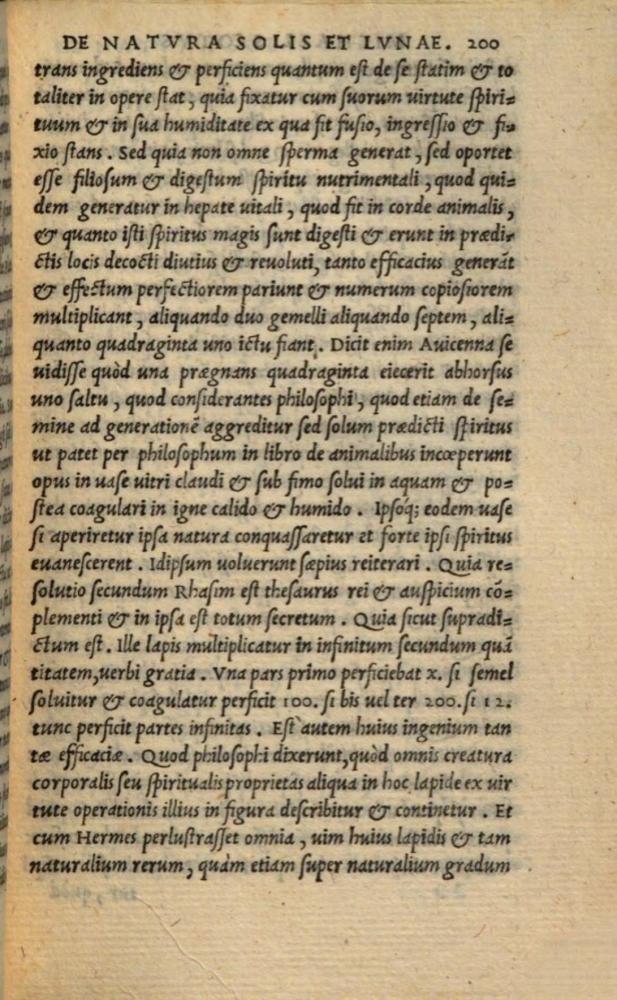 DE NATVRA SOLIS ET LVNAE. 200
trans ingrediens & perficiens quantum est de se statim & to
taliter in opere stat, quia fixatur cum suorum uirtute spiri=
tuum & in sua humiditate ex qua fit fusio, ingressio & fi=
xio stans. Sed quia non omne sperma generat, sed oportet
esse filiosum & digestum spiritu nutrimentali, quod qui=
dem generatur in hepate uitali, quod fit in corde animalis,
& quanto isti spiritus magis sunt digesti & erunt in prædi=
ctis locis decocti diutius & reuoluti, tanto efficacius generāt
& effectum perfectiorem pariunt & numerum copiosiorem
multiplicant, aliquando duo gemelli aliquando septem, ali=
quanto quadraginta uno ictu fiant. Dicit enim Auicenna se
uidisse quòd una prægnans quadraginta eiecerit abhorsus
uno saltu, quod considerantes philosophi, quod etiam de se=
mine ad generationē aggreditur sed solum prædicti spiritus
ut patet per philosophum in libro de animalibus incœperunt
opus in uase uitri claudi & sub fimo solui in aquam & po=
stea coagulari in igne calido & humido. Ipsoq́; eodem uase
si aperiretur ipsa natura conquassaretur et forte ipsi spiritus
euanescerent. Idipsum uoluerunt sæpius reiterari. Quia re=
solutio secundum Rhasim est thesaurus rei & auspicium cō=
plementi & in ipsa est totum secretum. Quia sicut supradi=
ctum est. Ille lapis multiplicatur in infinitum secundum quā
titatem, uerbi gratia. Vna pars primo perficiebat x. si semel
soluitur & coagulatur perficit 100. si bis uel ter 200. si 12.
tunc perficit partes infinitas. Est autem huius ingenium tan
tæ efficaciæ. Quod philosophi dixerunt, quòd omnis creatura
corporalis seu spiritualis proprietas aliqua in hoc lapide ex uir
tute operationis illius in figura describitur & continetur. Et
cum Hermes perlustrasset omnia, uim huius lapidis & tam
naturalium rerum, quàm etiam super naturalium gradum